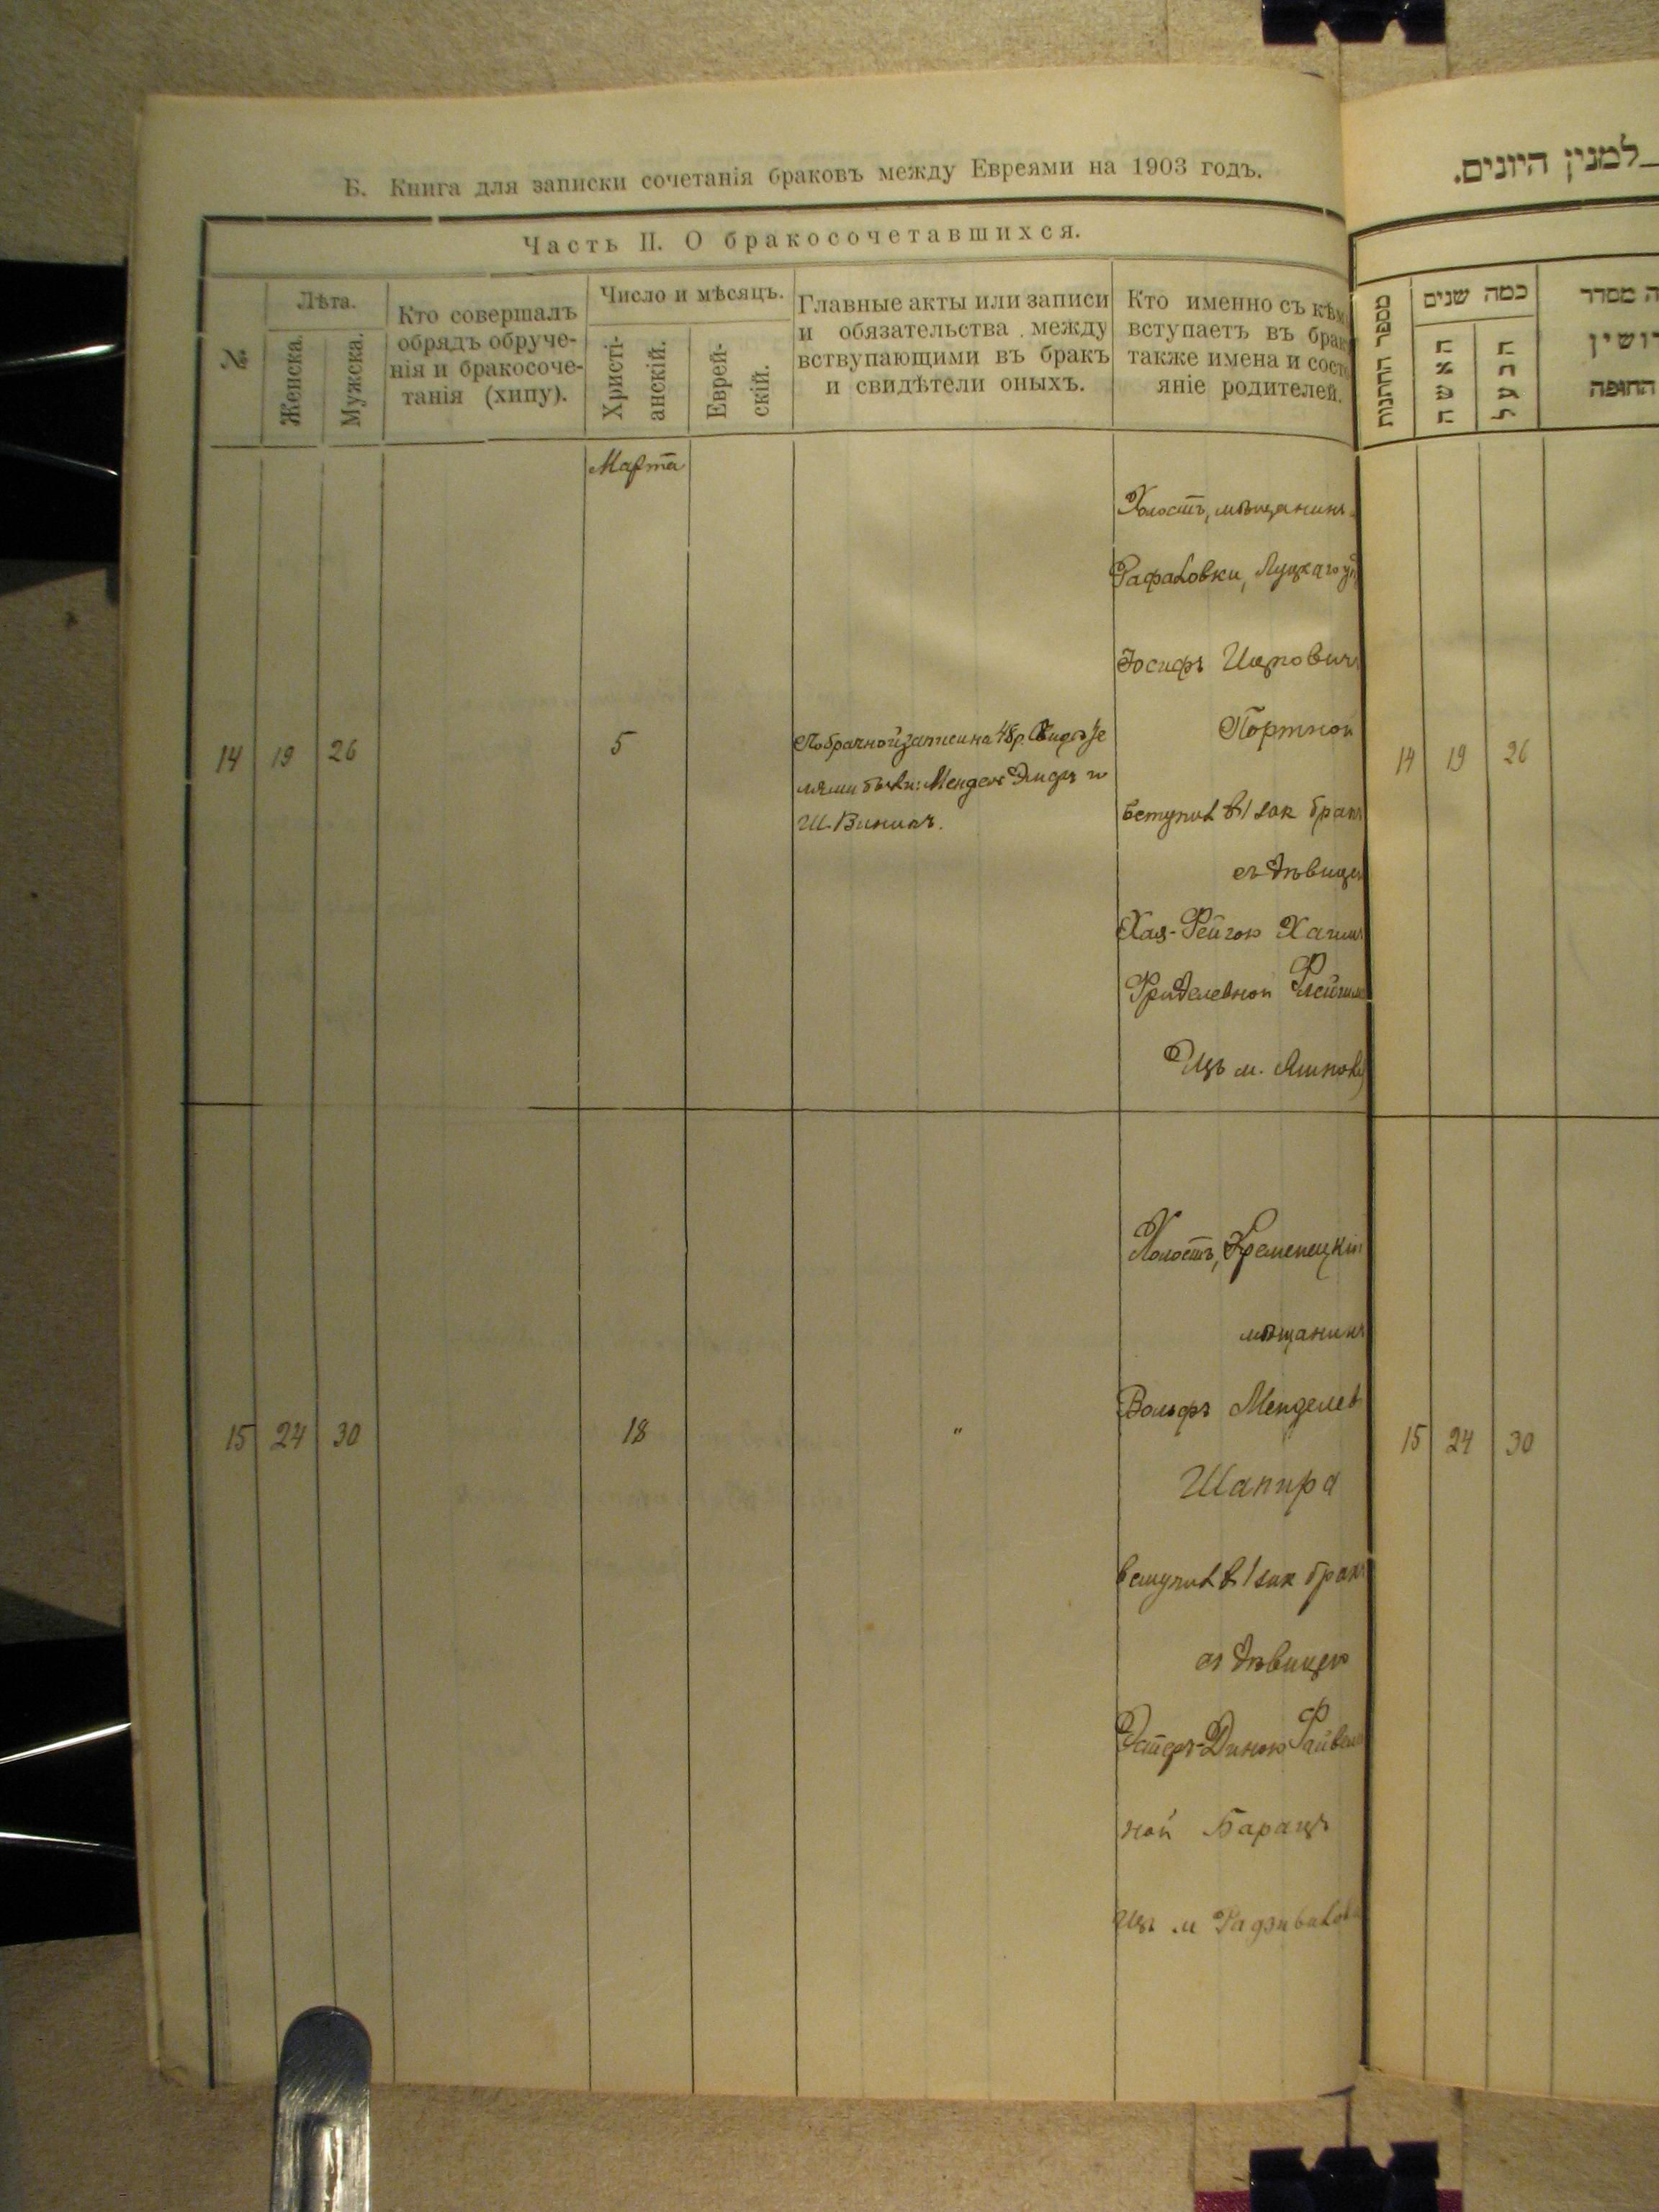 Б. Книга для записки сочетанія браковъ между Евреями на 1903 годъ.
Часть II. О бракосочетавшихся.
№
Лѣта.
Женска.
Мужска.
Кто совершалъ
обрядъ обруче-
нія и бракосоче-
танія (хипу).
Число и мѣсяцъ.
Христі-
анскій.
Еврей-
скій.
Главные акты или записи
и обязательства между
вствупающими въ бракъ
и свидѣтели оныхъ.
Кто именно съ кѣмъ
вступаетъ въ бракъ
также имена и состо
яніе родителей.
Марта
14 19 26 5
По брачной записи на 48 р. Свидѣте
лями были: Мендель и
Ш. Виникъ.
Холостъ, мѣщанинъ
Рафаловки, Луцкаго у
Іосифъ Ицковичъ
Портной
вступил в 1 зак бракъ
съ дѣвицей
Хая-Фейгою Хаимъ
Фриделевной
Изъ м.
15 24 30 18 "
Холостъ, Кременецкій
мѣщанинъ
Вольфъ Менделев
Шапира
вступил в 1 зак бракъ
съ дѣвицею
Эстеръ-Диною Файвел
ной Барацъ
Изъ м Радзивилов
למנין היונים.
מספר החתנות
כמה שנים
האשה
הבעל
ה מסדר
דושין
החופה
14 19 26
15 24 30